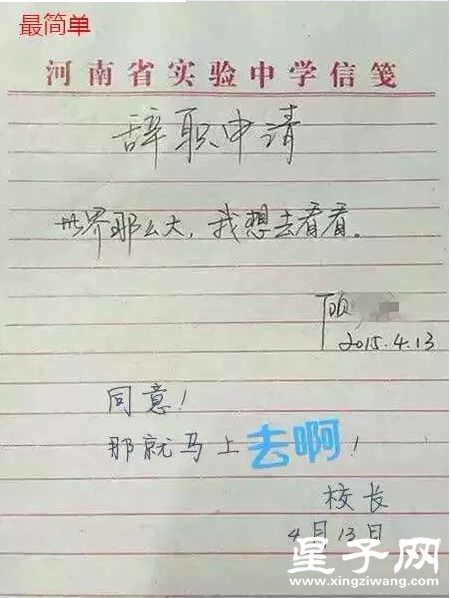 最简单
河南省实验中学信笺
辞职申请
世界那么大，我想去看看。
顾
2015.4.13
同意！
那就马上去啊！
校长
4月13日
星子网
www.xingziwang.com